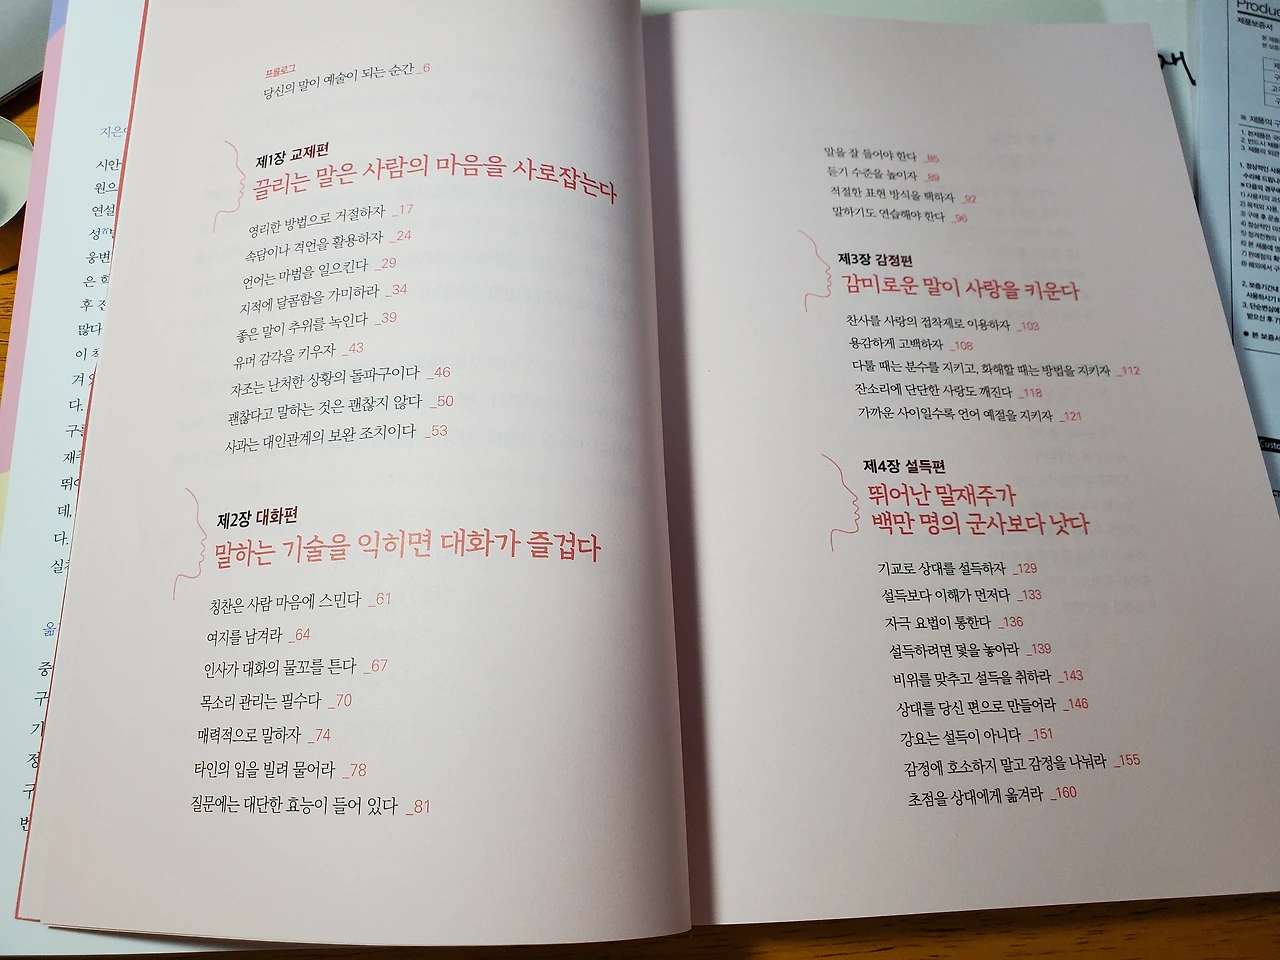 프롤로그
당신의 말이 예술이 되는 순간 _6
제1장 교제편
끌리는 말은 사람의 마음을 사로잡는다
영리한 방법으로 거절하자 _17
속담이나 격언을 활용하자 _24
언어는 마법을 일으킨다 _29
지적에 달콤함을 가미하라 _34
좋은 말이 추위를 녹인다 _39
유머 감각을 키우자 _43
자조는 난처한 상황의 돌파구이다 _46
괜찮다고 말하는 것은 괜찮지 않다 _50
사과는 대인관계의 보완 조치이다 _53
제2장 대화편
말하는 기술을 익히면 대화가 즐겁다
칭찬은 사람 마음에 스민다 _61
여지를 남겨라 _64
인사가 대화의 물꼬를 튼다 _67
목소리 관리는 필수다 _70
매력적으로 말하자 _74
타인의 입을 빌려 물어라 _78
질문에는 대단한 효능이 들어 있다 _81
말을 잘 들어야 한다 _85
듣기 수준을 높이자 _89
적절한 표현 방식을 택하자 _92
말하기도 연습해야 한다 _96
제3장 감정편
감미로운 말이 사랑을 키운다
찬사를 사랑의 접착제로 이용하자 _103
용감하게 고백하자 _108
다툴 때는 분수를 지키고, 화해할 때는 방법을 지키자 _112
잔소리에 단단한 사랑도 깨진다 _118
가까운 사이일수록 언어 예절을 지키자 _121
제4장 설득편
뛰어난 말재주가
백만 명의 군사보다 낫다
기교로 상대를 설득하자 _129
설득보다 이해가 먼저다 _133
자극 요법이 통한다 _136
설득하려면 덫을 놓아라 _139
비위를 맞추고 설득을 취하라 _143
상대를 당신 편으로 만들어라 _146
강요는 설득이 아니다 _151
감정에 호소하지 말고 감정을 나눠라 _155
초점을 상대에게 옮겨라 _160
제품보증서